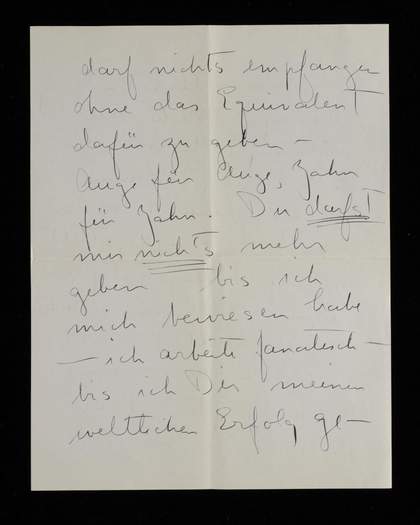 darf nichts empfangen
ohne das Equivalent
dafür zu geben –
Auge für Auge, Zahn
für Zahn. Du darfst
mir nichts mehr
geben bis ich
mich bewiesen habe
– ich arbeite fanatisch –
bis ich Dir meinen
weltlichen Erfolg ge–